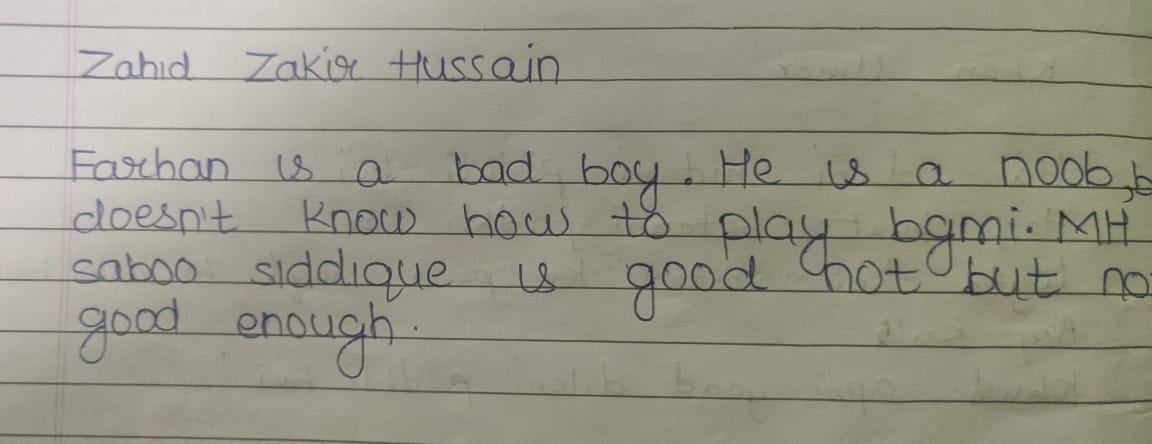 Zahid Zakir Hussain
Farhan is a bad boy. He is a noob, b
doesn't know how to play bgmi. MH
saboo siddique is good not but no
good enough.